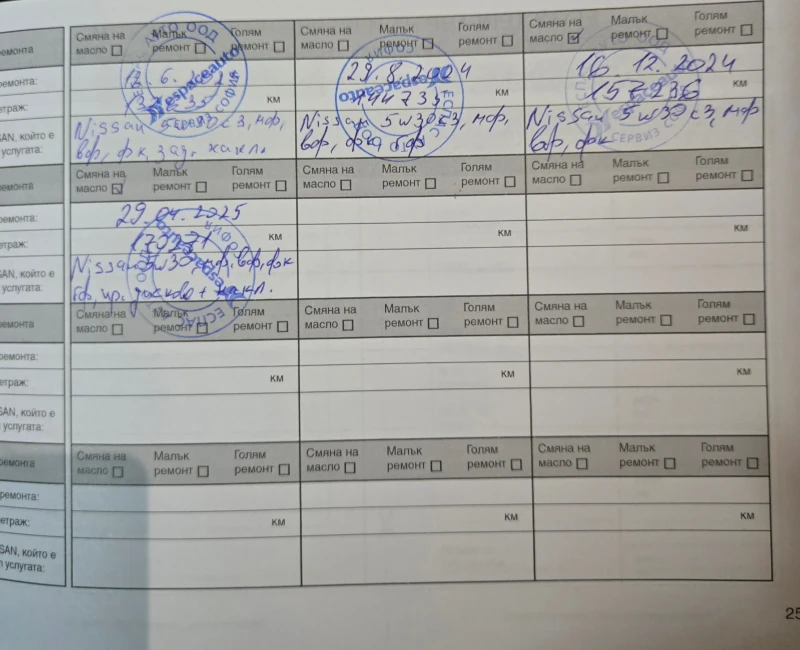 Смяна на масло Малък ремонт Голям ремонт Смяна на масло Малък ремонт Голям ремонт Смяна на масло Малък ремонт Голям ремонт
ремонта
ремонта: 29.8.2024 16.12.2024
етраж: км 144733 км 157236 км
SAN, който е Nissan 5w30 c3, мф, Nissan 5w30 c3, мф, Nissan 5w30 c3, мф
услугата: вф, фк, зад. накл. вф, фк, гф вф, фк
espaceauto
СОФИЯ
Смяна на масло Малък ремонт Голям ремонт Смяна на масло Малък ремонт Голям ремонт Смяна на масло Малък ремонт Голям ремонт
ремонта
ремонта: 29.04.2025
етраж: км км км
SAN, който е Nissan 5w30, мф, вф, фк
услугата: гф, пр. + накл.
Смяна на масло Малък ремонт Голям ремонт Смяна на масло Малък ремонт Голям ремонт Смяна на масло Малък ремонт Голям ремонт
ремонта
ремонта:
етраж: км км км
SAN, който е
услугата:
Смяна на масло Малък ремонт Голям ремонт Смяна на масло Малък ремонт Голям ремонт Смяна на масло Малък ремонт Голям ремонт
ремонта
ремонта:
етраж: км км км
SAN, който е
услугата:
25